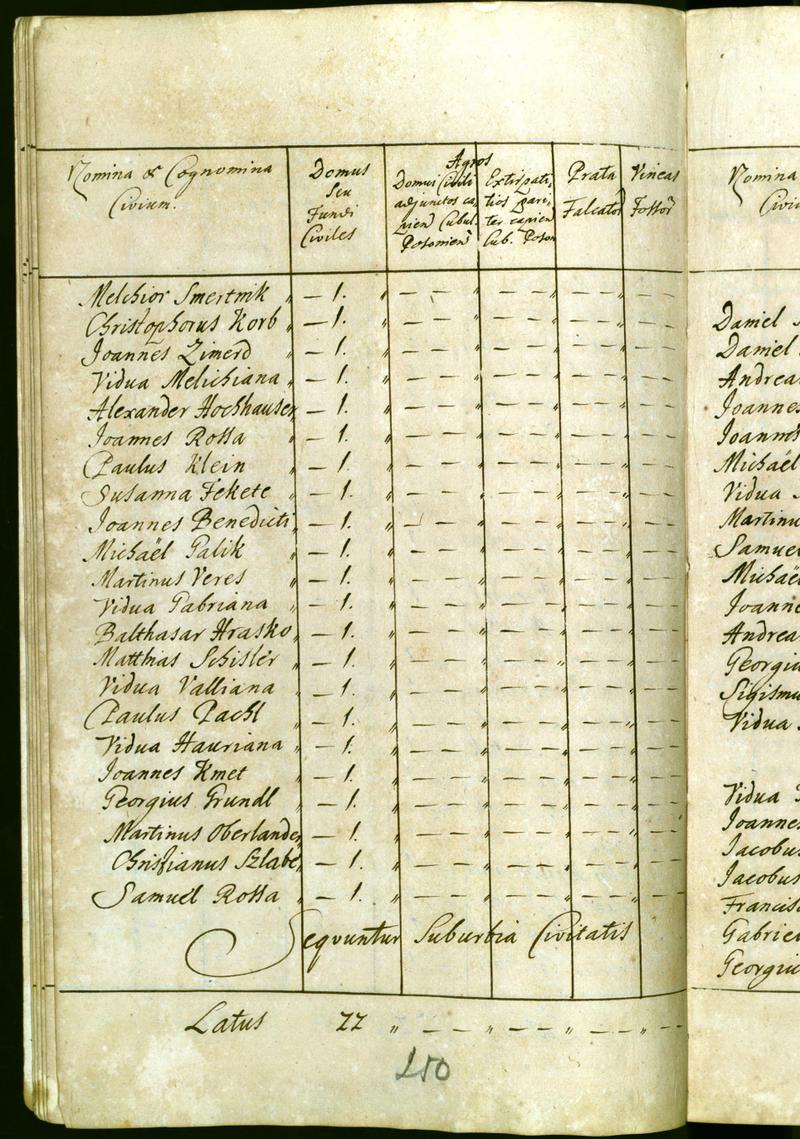 Nomina & Cognomina
Civium.
Domus
Seu
Fundi
Civiles
Agros
Domui Civili
adjunctos ca
pien Cubul.
Posonien
Extirpati
tios pari
ter capien
Cub. Poson
Prata
Falcator
Vineas
Fossor
Melchior Smertnik " — 1. " — — " — — " — — " — —
Christophorus Korb " — 1. " — — " — — " — — " — —
Joannes Zimerd " — 1. " — — " — — " — — " — —
Vidua Melichiana " — 1. " — — " — — " — — " — —
Alexander Hochhauser " — 1. " — — " — — " — — " — —
Joannes Rossa " — 1. " — — " — — " — — " — —
Paulus Klein " — 1. " — — " — — " — — " — —
Susanna Fekete " — 1. " — — " — — " — — " — —
Joannes Benedicti " — 1. " — — " — — " — — " — —
Michaël Galik " — 1. " — — " — — " — — " — —
Martinus Veres " — 1. " — — " — — " — — " — —
Vidua Gabriana " — 1. " — — " — — " — — " — —
Balthasar Hrasko " — 1. " — — " — — " — — " — —
Matthias Schisler " — 1. " — — " — — " — — " — —
Vidua Valliana " — 1. " — — " — — " — — " — —
Paulus Pachl " — 1. " — — " — — " — — " — —
Vidua Hauriana " — 1. " — — " — — " — — " — —
Joannes Kmet " — 1. " — — " — — " — — " — —
Georgius Grundl " — 1. " — — " — — " — — " — —
Martinus Oberlander " — 1. " — — " — — " — — " — —
Christianus Szlabe " — 1. " — — " — — " — — " — —
Samuel Rossa " — 1. " — — " — — " — — " — —
Seqvuntur Suburbia Civitatis
Latus 22 " — — " — — " — — " — —
250
Nomina
Civi
Daniel
Daniel
Andrea
Joannes
Joannes
Michaël
Vidua
Martinu
Samuel
Michaë
Joanne
Andrea
Georgiu
Sigismu
Vidua
Vidua
Joannes
Jacobus
Jacobus
Francis
Gabriel
Georgiu